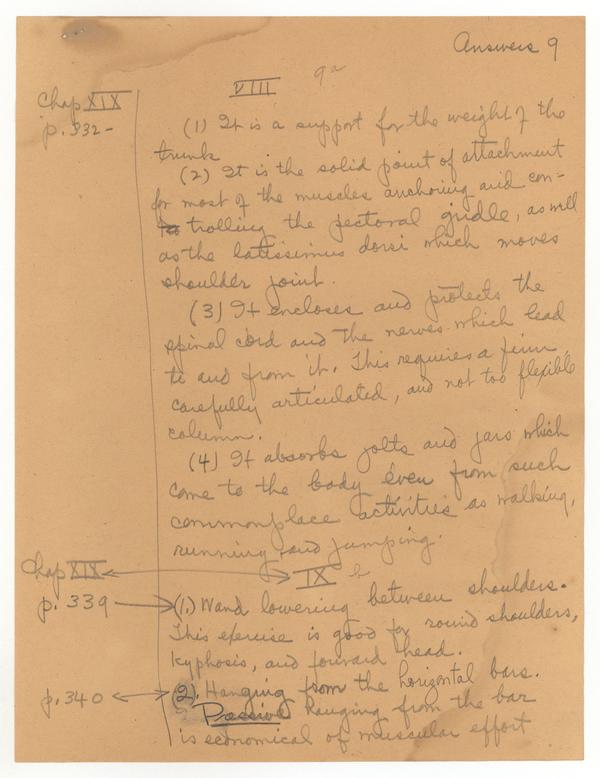 Answers 9
9a
VIII
Chap XIX
p. 332-
(1) It is a support for the weight of the
trunk
(2) It is the solid point of attachment
for most of the muscles anchoring and con-
trolling the pectoral girdle, as well
as the latissimus dorsi which moves
shoulder joint.
(3) It encloses and protects the
spinal cord and the nerves which lead
to and from it. This requires a firm,
carefully articulated, and not too flexible
column.
(4) It absorbs jolts and jars which
come to the body even from such
commonplace activities as walking,
running and jumping.
Chap XIX
IX
p. 339
(1.) Wand lowering between shoulders.
This exercise is good for round shoulders,
kyphosis, and forward head.
p. 340
(2). Hanging from the horizontal bars.
Passive hanging from the bar
is economical of muscular effort